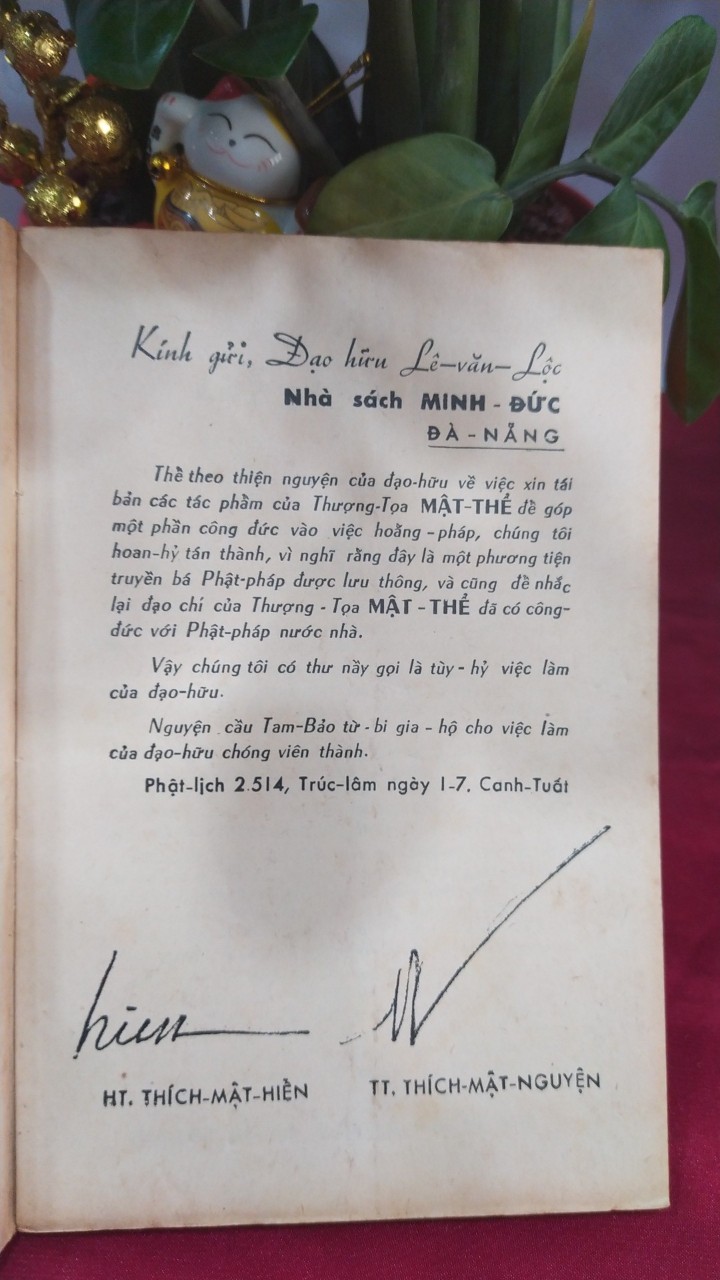 Kính gửi, Đạo hữu Lê-văn-Lộc
Nhà sách MINH - ĐỨC
ĐÀ - NẴNG
Thể theo thiện nguyện của đạo-hữu về việc xin tái
bản các tác phẩm của Thượng-Tọa MẬT-THỂ để góp
một phần công đức vào việc hoằng-pháp, chúng tôi
hoan-hỷ tán thành, vì nghĩ rằng đây là một phương tiện
truyền bá Phật-pháp được lưu thông, và cũng để nhắc
lại đạo chí của Thượng - Tọa MẬT - THỂ đã có công-
đức với Phật-pháp nước nhà.
Vậy chúng tôi có thư nầy gọi là tùy-hỷ việc làm
của đạo-hữu.
Nguyện cầu Tam-Bảo từ-bi gia-hộ cho việc làm
của đạo-hữu chóng viên thành.
Phật-lịch 2.514, Trúc-lâm ngày 1-7. Canh-Tuất
hiền
HT. THÍCH-MẬT-HIỀN
TT. THÍCH-MẬT-NGUYỆN